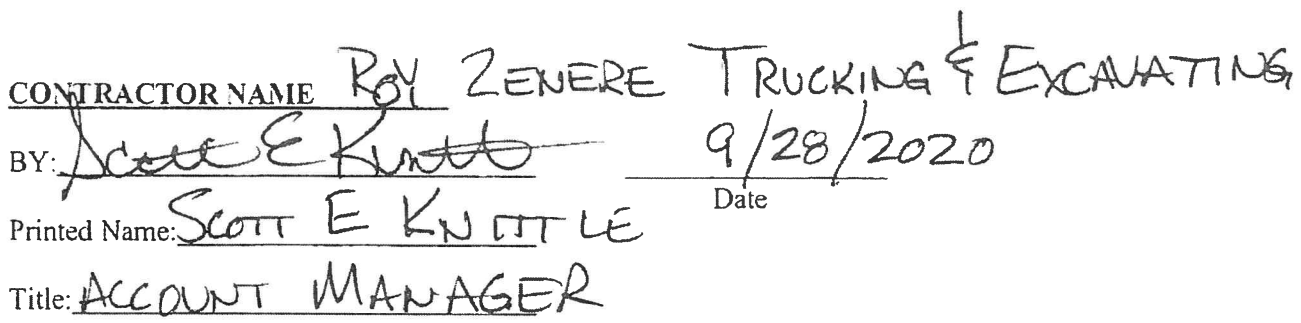 CONTRACTOR NAME ROY ZENERE TRUCKING & EXCAVATING
BY: Scott E Knittle 9/28/2020
Date
Printed Name: SCOTT E KNITTLE
Title: ACCOUNT MANAGER